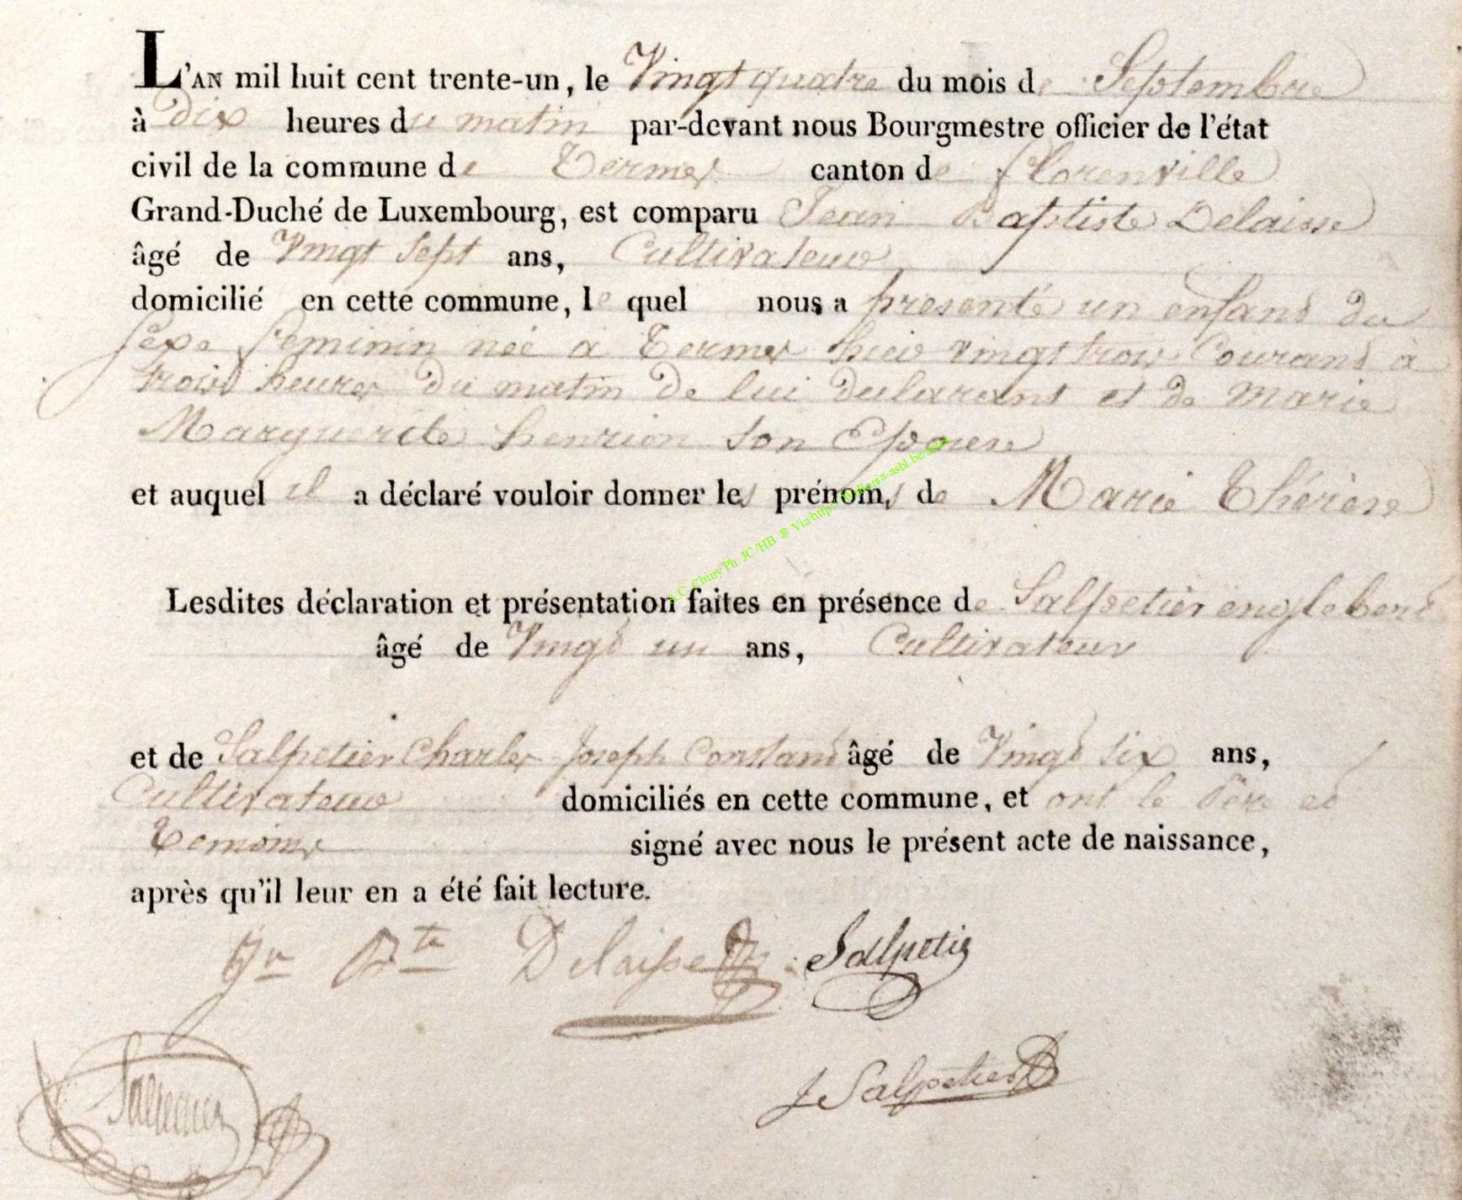 L'AN mil huit cent trente-un, le Vingt quatre du mois de Septembre
à Dix heures du matin par-devant nous Bourgmestre officier de l'état
civil de la commune de Termes canton de florenville
Grand-Duché de Luxembourg, est comparu Jean Baptiste Delaisse
âgé de Vingt Sept ans, Cultivateur
domicilié en cette commune, le quel nous a presenté un enfand du
sexe feminin née a Termes hier vingt trois Courand à
trois heures du matin de lui declarant et de Marie
Marguerite henrion son Epouse
et auquel il a déclaré vouloir donner les prénoms de Marie Thérèse
Lesdites déclaration et présentation faites en présence de Salpetier englebert
âgé de Vingt un ans, Cultivateur
et de Salpetier Charles Joseph Constand âgé de Vingt six ans,
Cultivateur domiciliés en cette commune, et ont le Père et
Temoins signé avec nous le présent acte de naissance,
après qu'il leur en a été fait lecture.
Jn Bte Delaisse Salpetier
Salpetier
J Salpetier